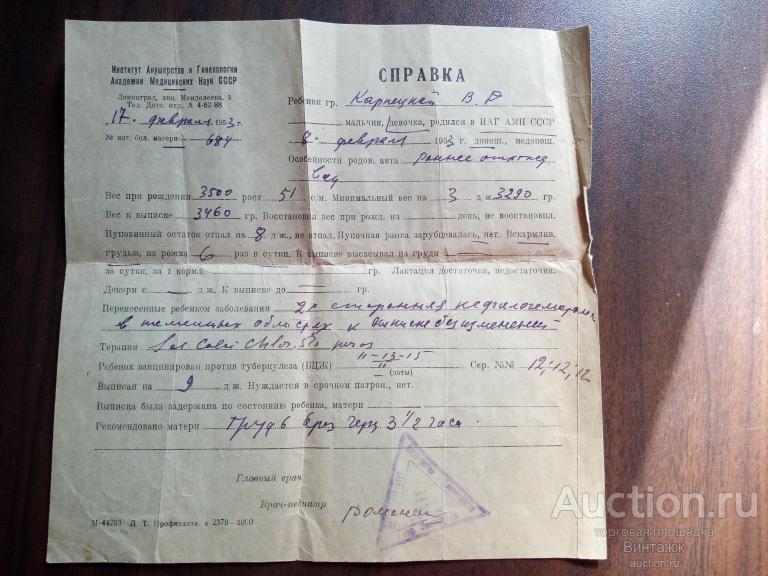 Институт Акушерства и Гинекологии
Академии Медицинских Наук СССР
Ленинград, лин. Менделеева, 3
Тел. Дето. отд. А 4-62-88
17 февраля 1953 г.
№ ист. бол. матери 684
СПРАВКА
Ребенок гр. Карпецкой В. Р
мальчик, девочка, родился в ИАГ АМН СССР
8 февраля 1953 г. донош., недонош.
Особенности родов. акта раннее
Вес при рождении 3500 рост 51 с/м. Минимальный вес на 3 д/ж 3290 гр.
Вес к выписке 3460 гр. Восстановил вес при рожд. на день, не восстановил.
Пуповинный остаток отпал на 8 д/ж., не отпал. Пупочная ранка зарубцевалась, нет. Вскармлив.
грудью, из рожка 6 раз в сутки. К выписке высасывал из груди
за сутки, за 1 кормл. гр. Лактация достаточна, недостаточна.
Докорм с — д/ж. К выписке до — гр.
Перенесенные ребенком заболевания 2х сторонняя
в теменных областях к выписке без изменений
Терапия Sol Calcii Chlor. 5% per os
Ребенок вакцинирован против туберкулеза (БЦЖ) 11-13-15 (даты) Сер. №№ 12; 12; 12
II
Выписан на 9 д/ж. Нуждается в срочном патрон., нет.
Выписка была задержана по состоянию ребенка, матери
Рекомендовано матери Грудь через 3 1/2 часа.
Главный врач
Врач-педиатр
М-44263 Л. Т. Профиздата. з. 2379-3000
Auction.ru
торговая площадка
Винтажж
auction.ru